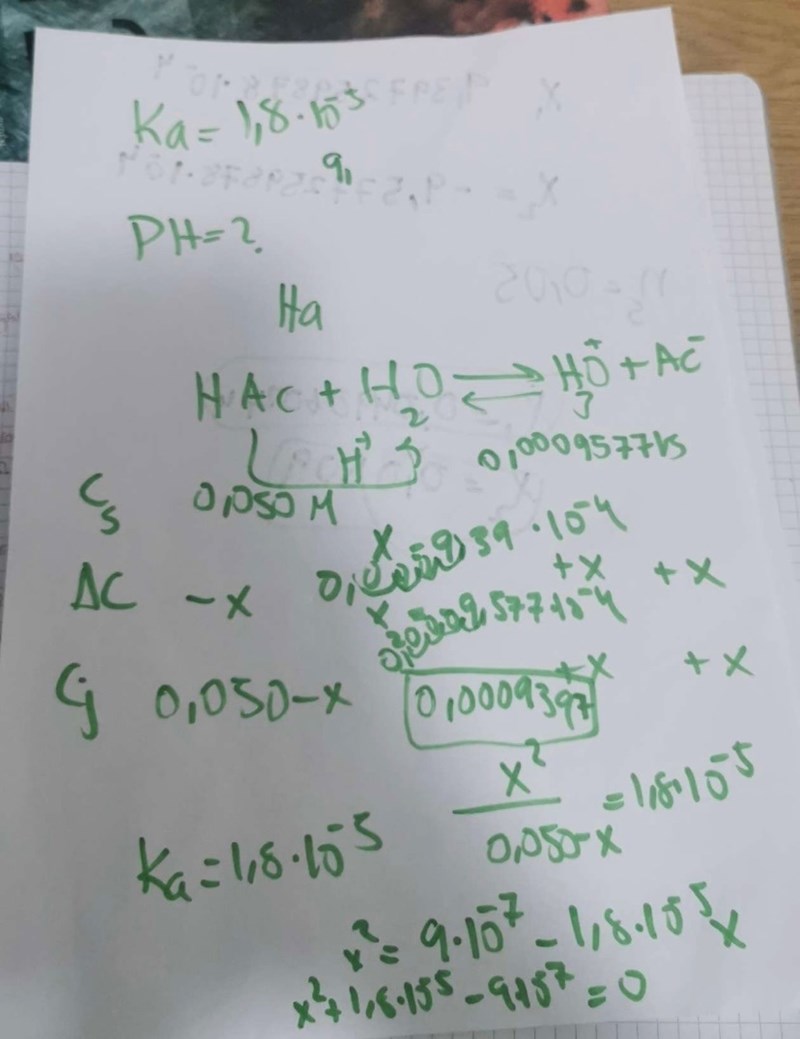 Ka = 1,8 · 10⁻⁵
9,
PH = ?
Ha
HAc + H₂O ⇌ H₃O⁺ + Ac⁻
H⁺
0,00095771s
Cs 0,050 M
x 9,39 · 10⁻⁴
ΔC -x 0, +x +x
x 9,577·10⁻⁴
Cj 0,050-x +x +x
0,0009397
x² / 0,050-x = 1,8·10⁻⁵
Ka = 1,8·10⁻⁵
x² = 9·10⁻⁷ - 1,8·10⁻⁵x
x² + 1,8·10⁻⁵ - 9·10⁻⁷ = 0